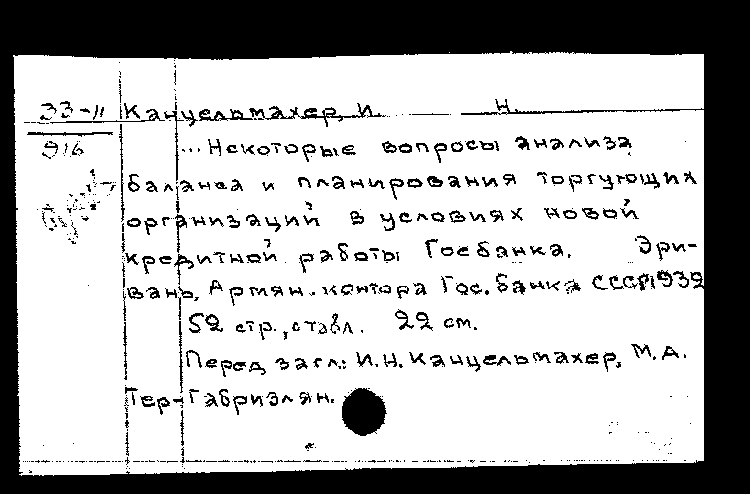 33-11 Канцельмахер, И. Н.
916 ...Некоторые вопросы анализа
баланса и планирования торгующих
организаций в условиях новой
кредитной работы Госбанка. Эри-
вань, Армян. контора Гос. банка СССР, 1932
52 стр., с табл. 22 см.
Перед загл.: И.Н. Канцельмахер, М.А.
Тер-Габриэлян.